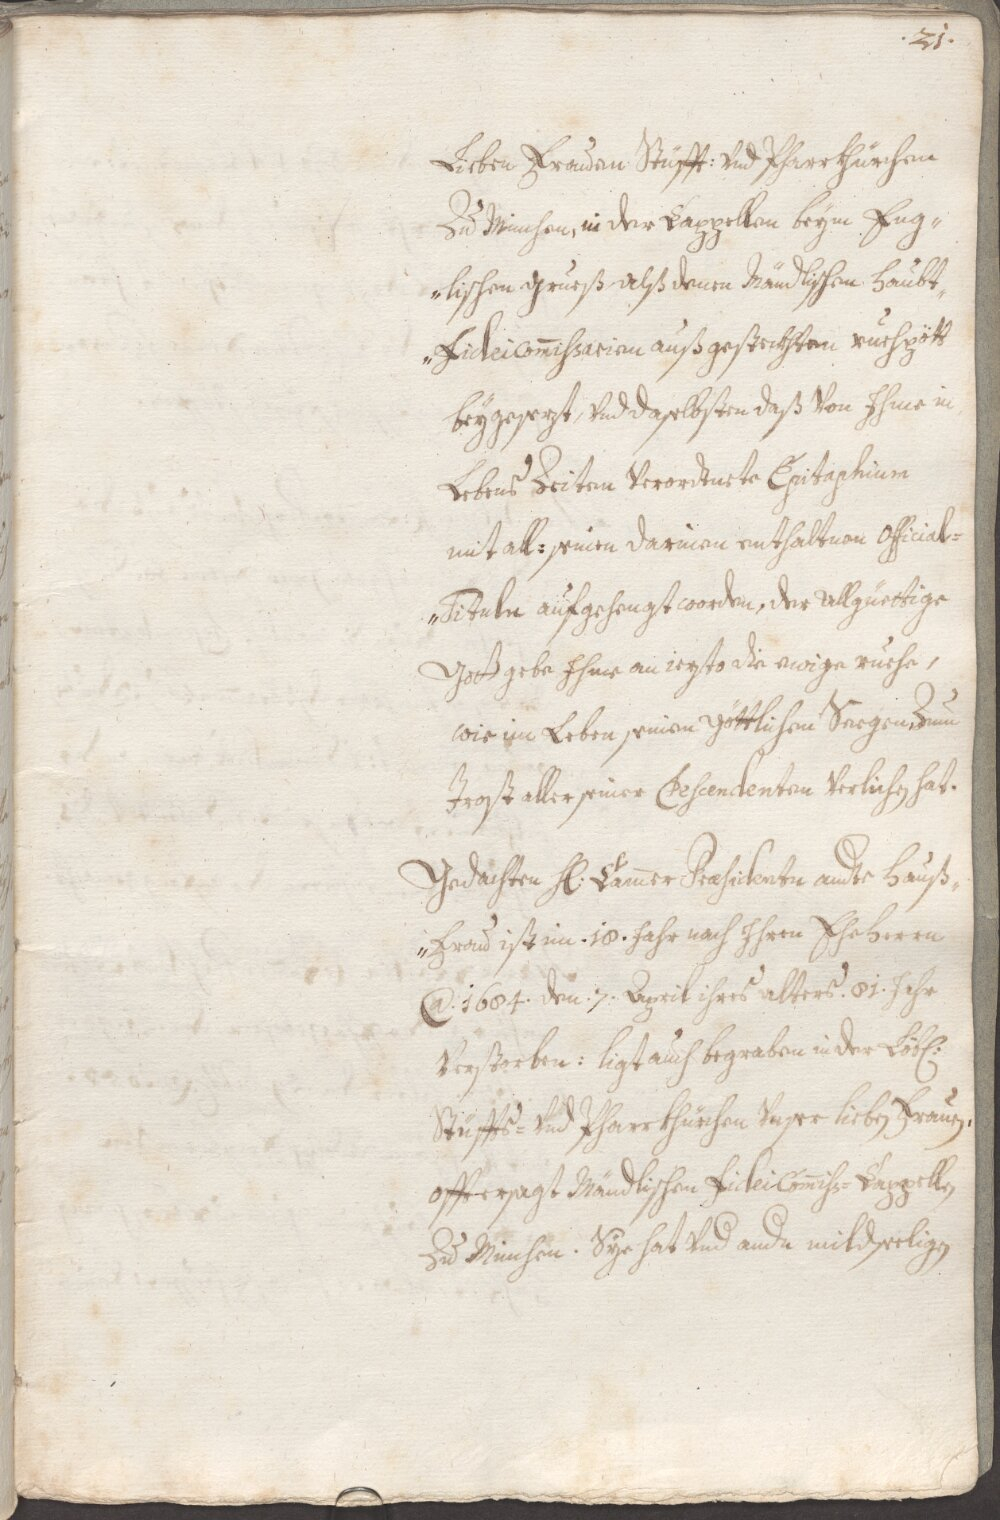 .21.
Lieben Frauen Stüfft: und Pharrkhürchen
Zu Minchen, in der Cappellen beÿm Eng„
„lischen grueß alß denen Mändlischen Haubt„
„Fideicom̄issarien außgesteckhten ruehe
beÿgesezt, und daselbsten daß von Ihme in
Lebens Zeiten verordnete Epitaphium
mit all: seinen darinen enthaltnen Official=
„Tituln aufgehengt worden, der Allgüettige
Gott gebe Ihme an iezto die ewige ruehe,
wie im Leben seinen göttlichen Seegen Zum
Trost aller seiner Descendenten verlichen hat.
Gedachten H: Cam̄er Præsidenten andte Hauß„
„Frau ist im .18. Jahr nach Ihren Eheherrn
A: 1684. den .7. April ihres alters .81. Jahr
verstorben: ligt auch begraben in der Löbl:
Stüffts= und Pharrkhürchen unser lieben Frauen,
offtersagt Mändlischen Fideicom̄iss= Cappellen
Zu Minchen. Sÿe hat und andn mildseeligen